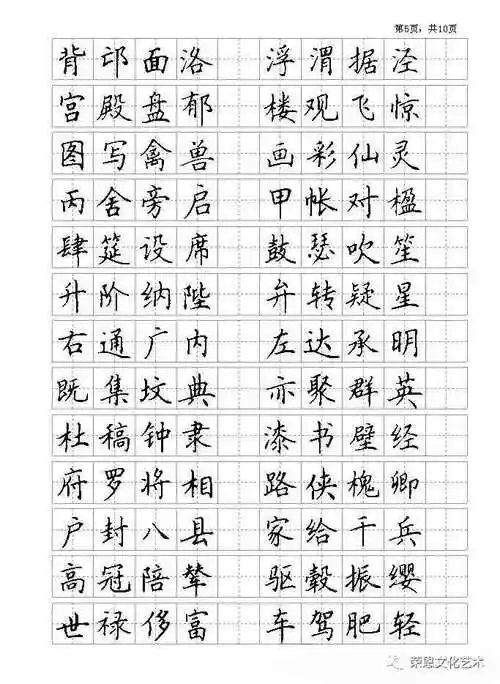 第5页，共10页
背邙面洛 浮渭据泾
宫殿盘郁 楼观飞惊
图写禽兽 画彩仙灵
丙舍旁启 甲帐对楹
肆筵设席 鼓瑟吹笙
升阶纳陛 弁转疑星
右通广内 左达承明
既集坟典 亦聚群英
杜稿钟隶 漆书壁经
府罗将相 路侠槐卿
户封八县 家给千兵
高冠陪辇 驱毂振缨
世禄侈富 车驾肥轻
荣恩文化艺术